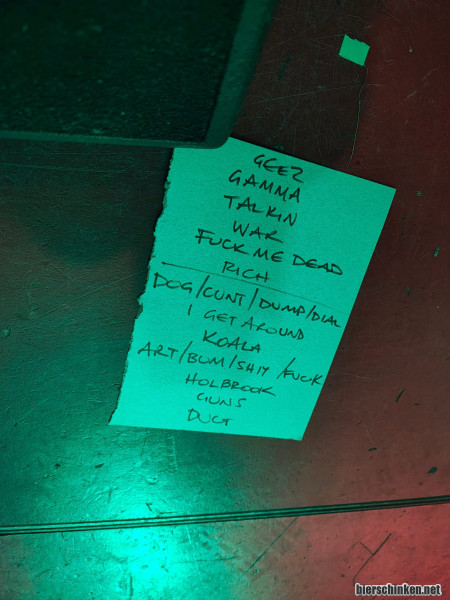 GEEZ
GAMMA
TALKIN
WAR
FUCK ME DEAD
RICH
DOG/CUNT/DUMP/DIAL
I GET AROUND
KOALA
ART/BUM/SHIT/FUCK
HOLBROOK
GUNS
DUCT
bierschinken.net